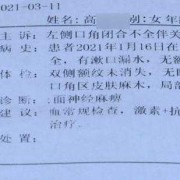 2021-03-11
姓名:高 易:女 年
主诉: 左侧口角闭合不全伴关
病史: 患者2021年1月16日在
全,有漱口漏水,无额
体检: 双侧额纹未消失,无
口角区皮肤麻木,局
诊断: :面神经麻痹
建议: 血常规检查,激素+抗
治疗.
处置: